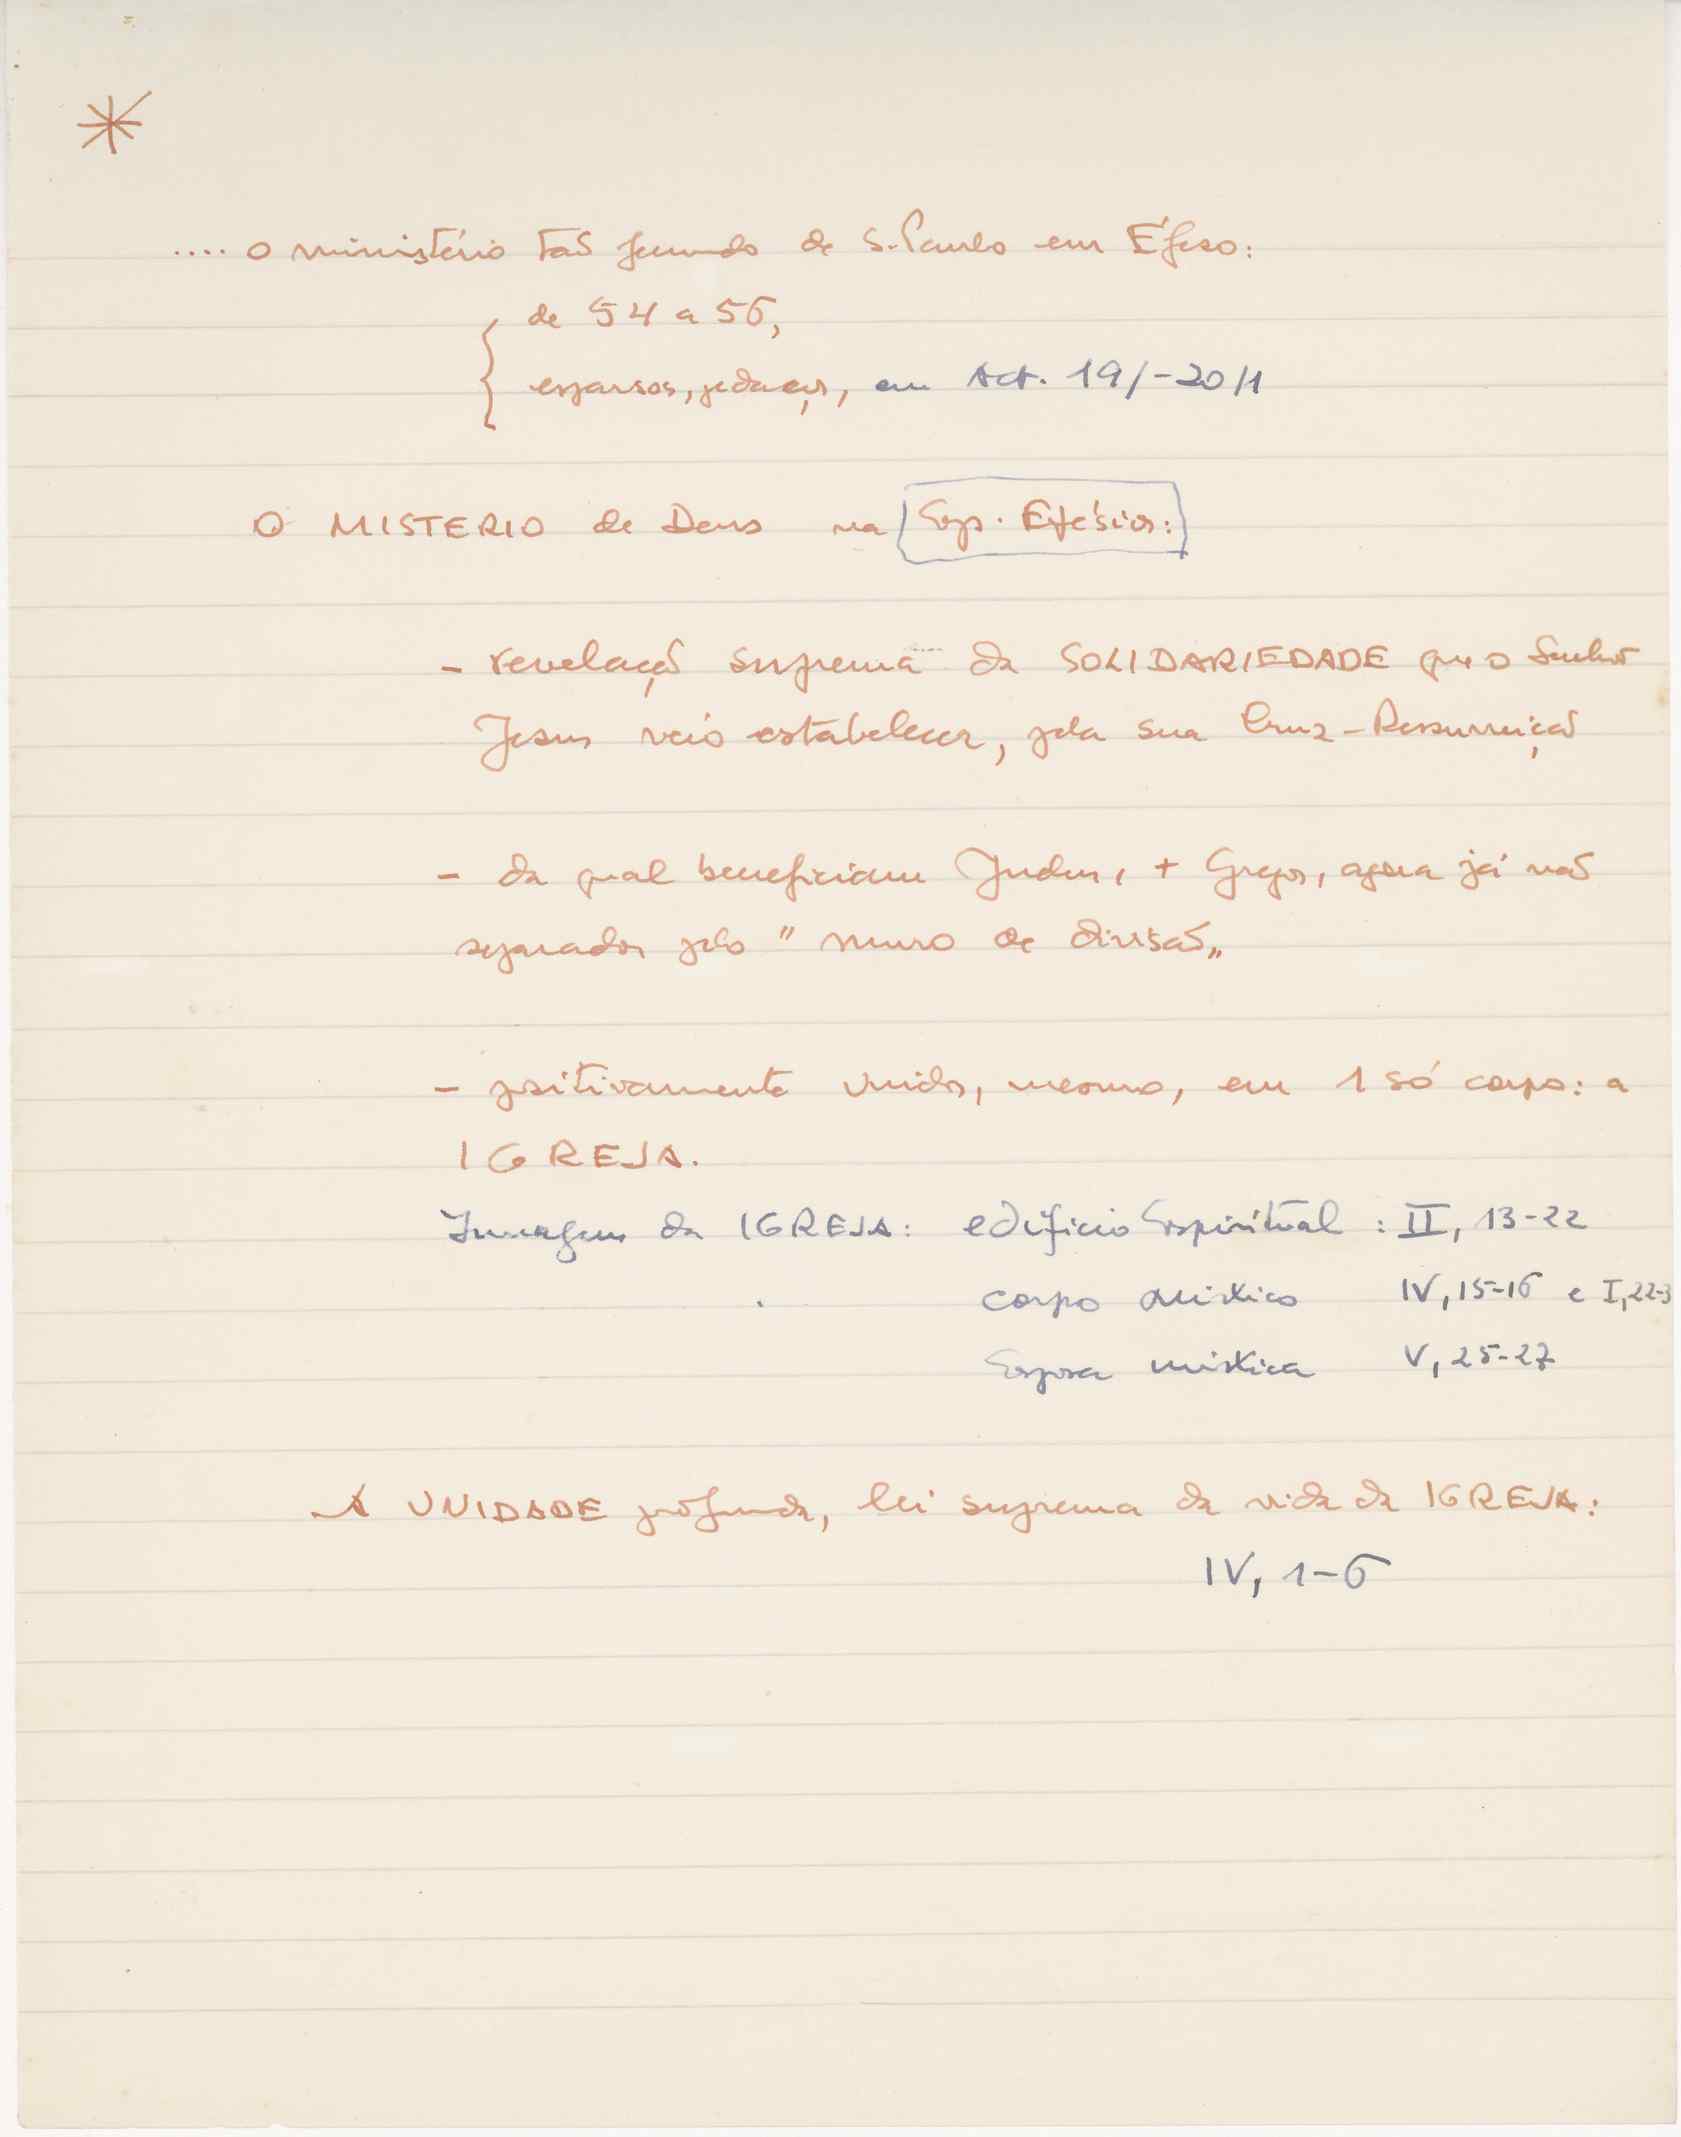 .... o ministério tão fecundo de S. Paulo em Éfeso:
de 54 a 56,
esparsos, pedaços, em Act. 19/-20/1
O MISTERIO de Deus na Esp. Efésios:
- revelação suprema da SOLIDARIEDADE que o Senhor
Jesus veio estabelecer, pela sua Cruz-Ressurreição
- da qual beneficiam Judeus, + Gregos, agora já não
separados pelo "muro de divisão"
- positivamente unidos, mesmo, em 1 só corpo: a
IGREJA.
Imagens da IGREJA: edifício Espiritual : II, 13-22
corpo místico IV, 15-16 e I, 22-3
Esposa mística V, 25-27
A UNIDADE profunda, lei suprema da vida da IGREJA:
IV, 1-6